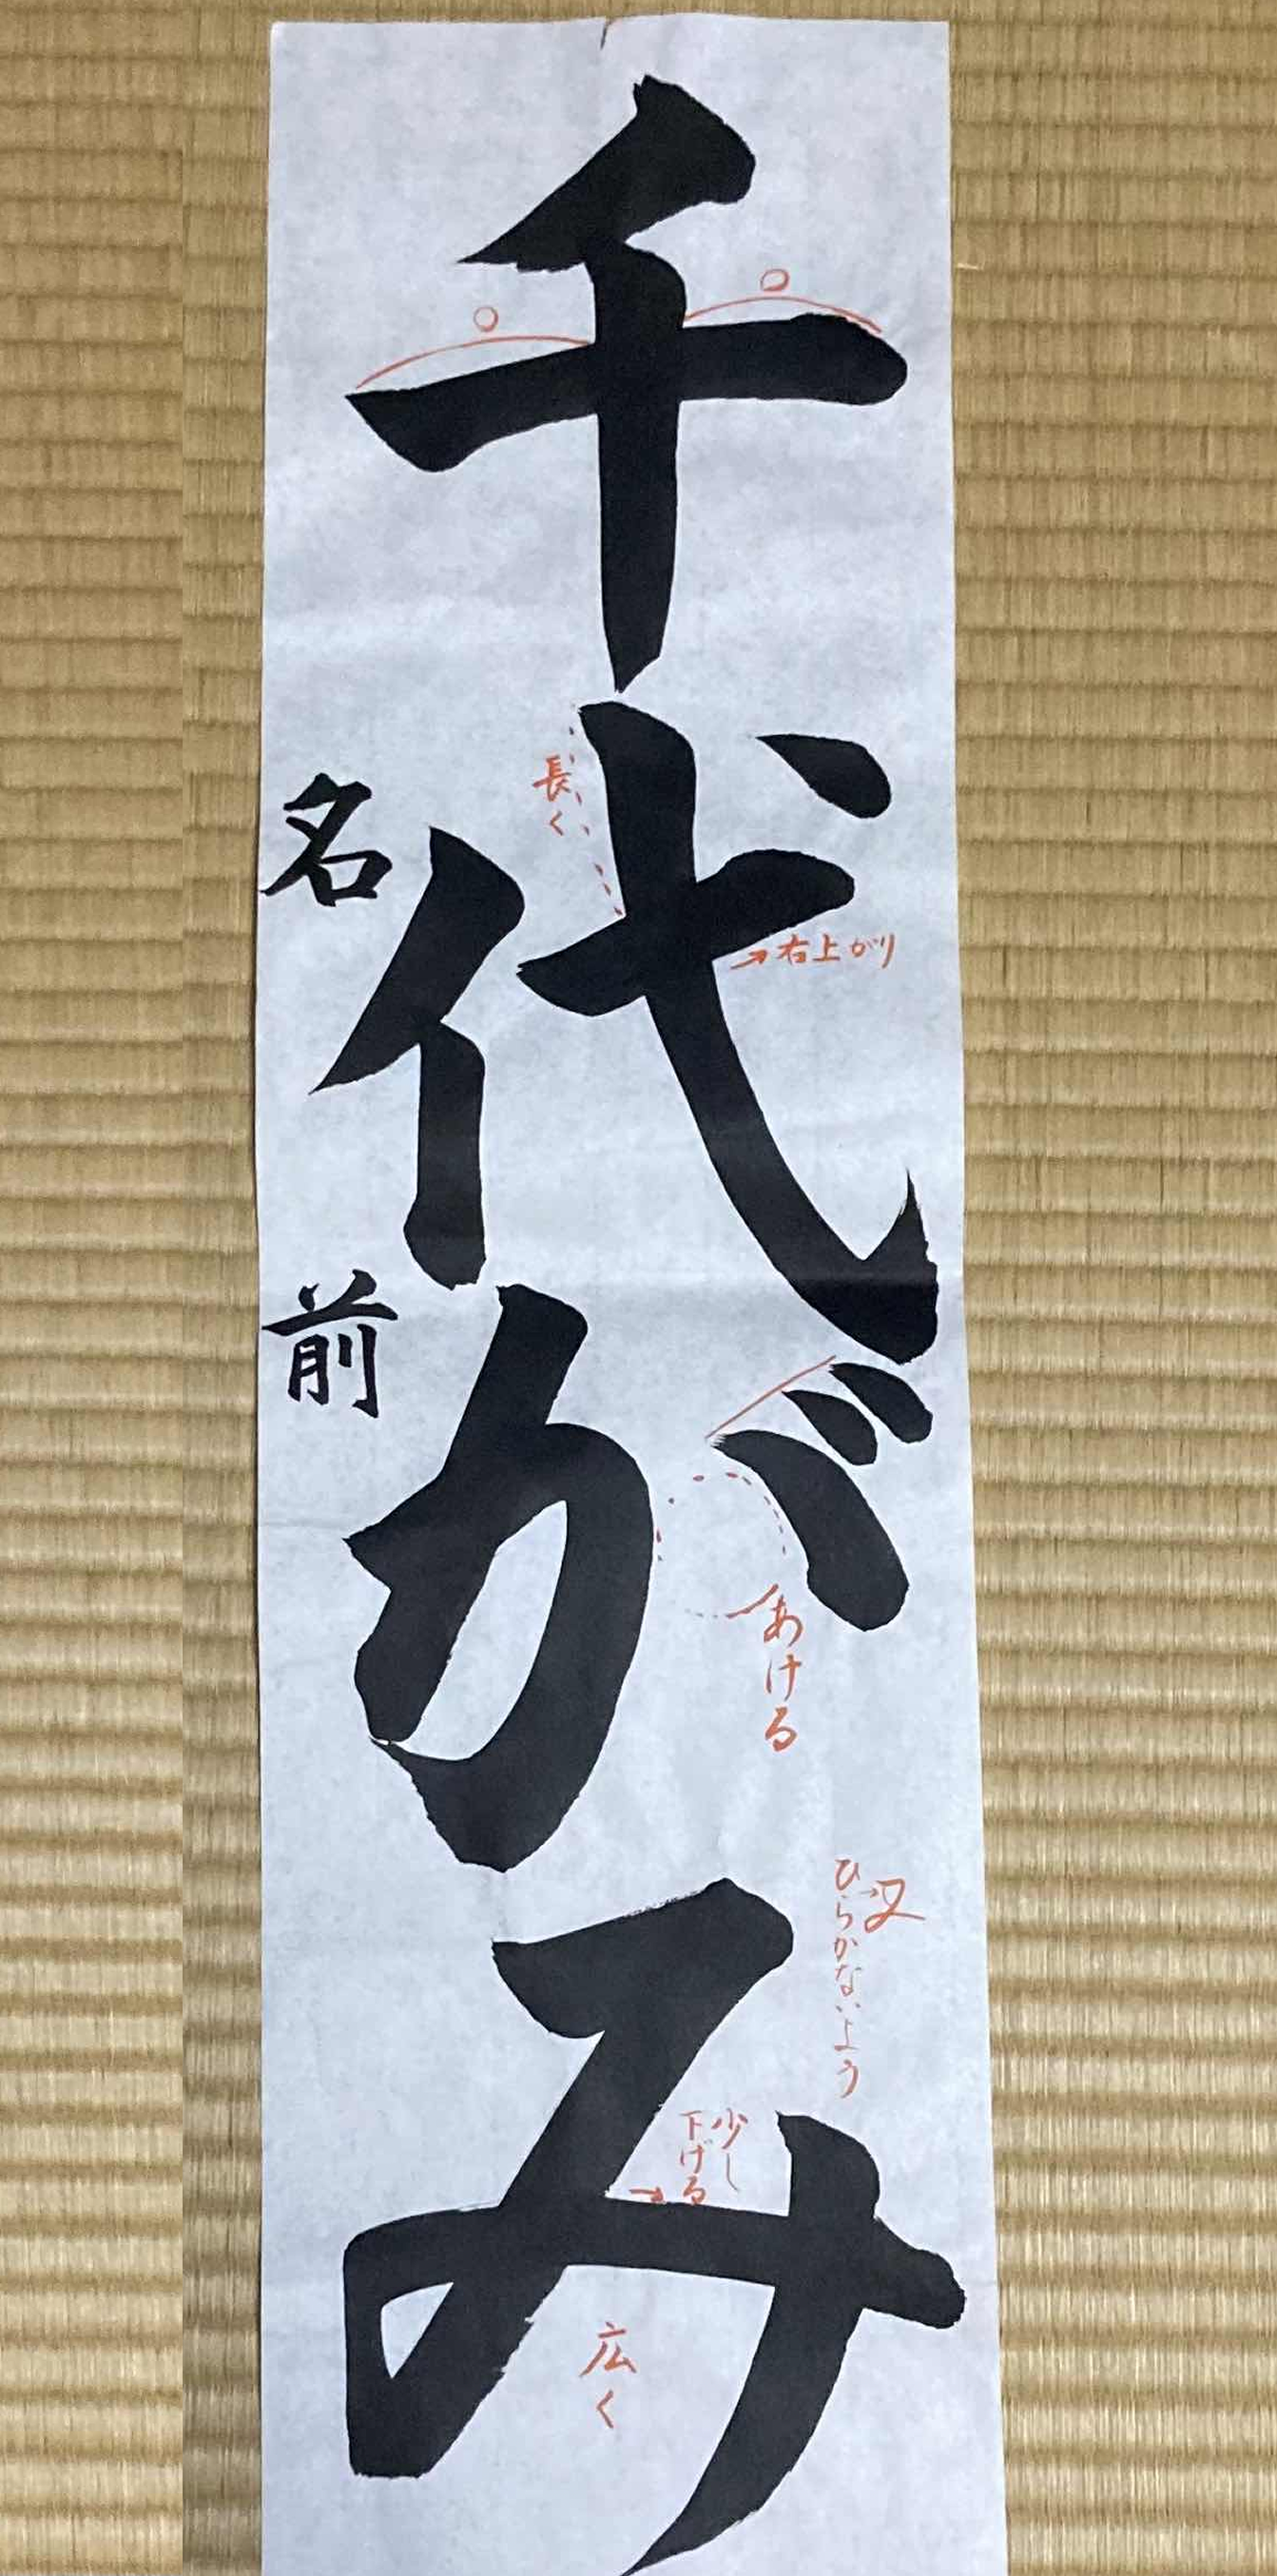 千代がみ
名前
長く
右上がり
あける
ひらかないよう
少し
下げる
広く